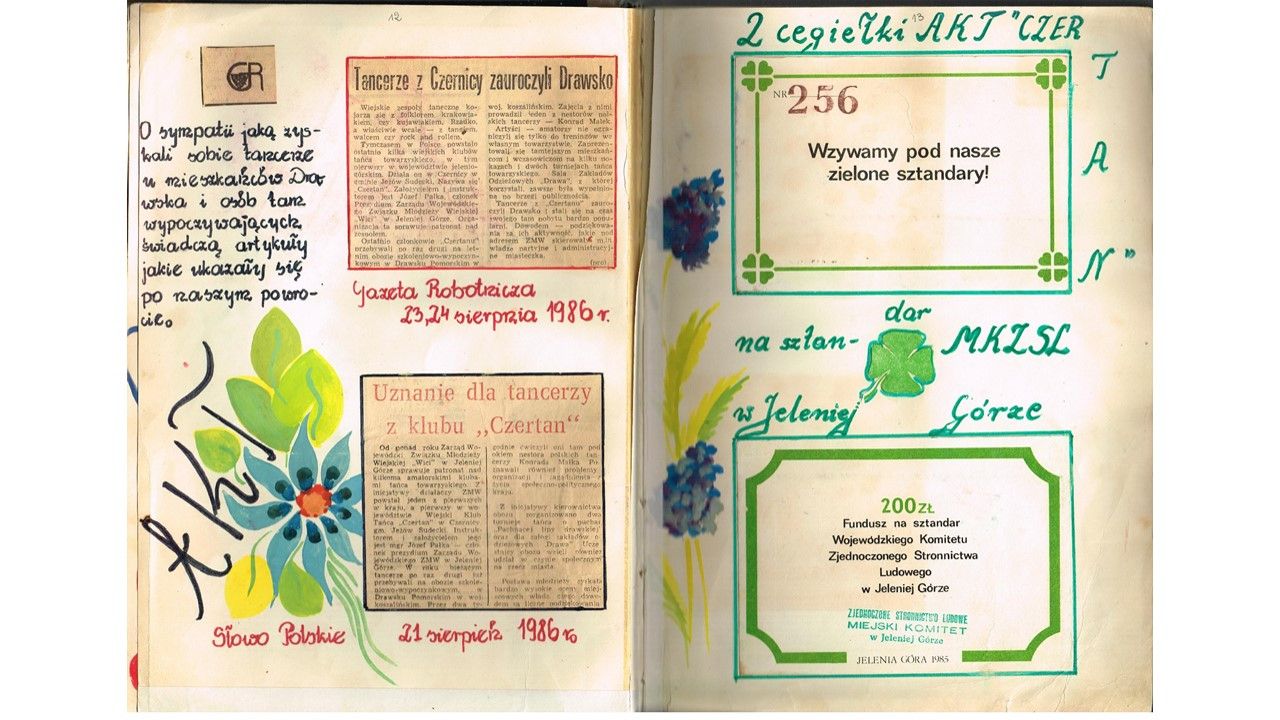 12
GR
O sympatii jaką zys-
kali sobie tancerze
u mieszkańców Draw
wska i osób tam
wypoczywających
świadczą artykuły
jakie ukazały się
po naszym powro-
cie.
Tancerze z Czernicy zauroczyli Drawsko
Wiejskie zespoły taneczne ko-
jarzą się z folklorem, krakowia-
kiem, czy kujawiakiem. Rzadko,
a właściwie wcale — z tangiem,
walcem czy rock and rollem.
Tymczasem w Polsce powstało
ostatnio kilka wiejskich klubów
tańca towarzyskiego, w tym
pierwszy w województwie jelenio-
górskim. Działa on w Czernicy w
gminie Jeżów Sudecki. Nazywa się
"Czertan". Założycielem i instruk-
torem jest Józef Pałka, członek
Prezydium Zarządu Wojewódzkie-
go Związku Młodzieży Wiejskiej
„Wici" w Jeleniej Górze. Orga-
nizacja ta sprawuje patronat nad
zespołem.
Ostatnio członkowie „Czertanu"
przebywali po raz drugi na let-
nim obozie szkoleniowo-wypoczyn-
kowym w Drawsku Pomorskim w
woj. koszalińskim. Zajęcia z nimi
prowadził jeden z nestorów pols-
kich tancerzy — Konrad Małek.
Artyści — amatorzy nie ogra-
niczyli się tylko do treningów we
własnym towarzystwie. Zaprezen-
towali się tamtejszym mieszkań-
com i wczasowiczom na kilku po-
kazach i dwóch turniejach tańca
towarzyskiego. Sala Zakładów
Odzieżowych „Drawa", z której
korzystali, zawsze była wypełnio-
na po brzegi publicznością.
Tancerze z „Czertanu" zauro-
czyli Drawsko i stali się na czas
swojego tam pobytu bardzo popu-
larni. Dowodem — podziękowa-
nia za ich aktywność, jakie pod
adresem ZMW skierowały m.in.
władze partyjne i administracyj-
ne miasteczka.
(pro)
Gazeta Robotnicza
23,24 sierpnia 1986 r.
Uznanie dla tancerzy
z klubu „Czertan"
Od ponad roku Zarząd Wo-
jewódzki Związku Młodzieży
Wiejskiej „Wici" w Jeleniej
Górze sprawuje patronat nad
kilkoma amatorskimi kluba-
mi tańca towarzyskiego. Z
inicjatywy działaczy ZMW
powstał jeden z pierwszych
w kraju, a pierwszy w wo-
jewództwie Wiejski Klub
Tańca „Czertan" w Czernicy,
gm. Jeżów Sudecki. Instruk-
torem i założycielem jego
jest mgr Józef Pałka — czło-
nek prezydium Zarządu Wo-
jewódzkiego ZMW w Jeleniej
Górze. W roku bieżącym
tancerze po raz drugi już
przebywali na obozie szkole-
niowo-wypoczynkowym w
Drawsku Pomorskim w woj.
koszalińskim. Przez dwa ty-
godnie ćwiczyli oni tam pod
okiem nestora polskich tan-
cerzy Konrada Małka. Po-
znawali również problemy
organizacji i zagadnienia z
życia społeczno-politycznego
kraju.
Z inicjatywy kierownictwa
obozu zorganizowano dwa
turnieje tańca o puchar
Słowo Polskie
21 sierpień 1986 r.
13
2 cegiełki AKT "CZER
T
A
N"
NR 256
Wzywamy pod nasze
zielone sztandary!
dar
na sztan- MKZSL
w Jeleniej Górze
200 ZŁ
Fundusz na sztandar
Wojewódzkiego Komitetu
Zjednoczonego Stronnictwa
Ludowego
w Jeleniej Górze
ZJEDNOCZONE STRONNICTWO LUDOWE
MIEJSKI KOMITET
w Jeleniej Górze
JELENIA GÓRA 1985